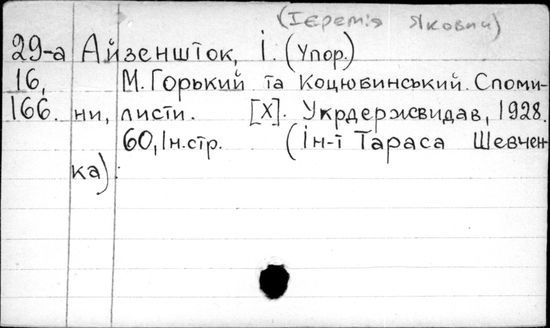 (Ієремія Якович)
29-а Айзеншток, І. (Упор.)
16, М. Горький та Коцюбинський. Споми-
166. ни, листи. [Х]. Укрдержвидав, 1928.
60, Ін. стр. (Ін-т Тараса Шевчен-
ка).